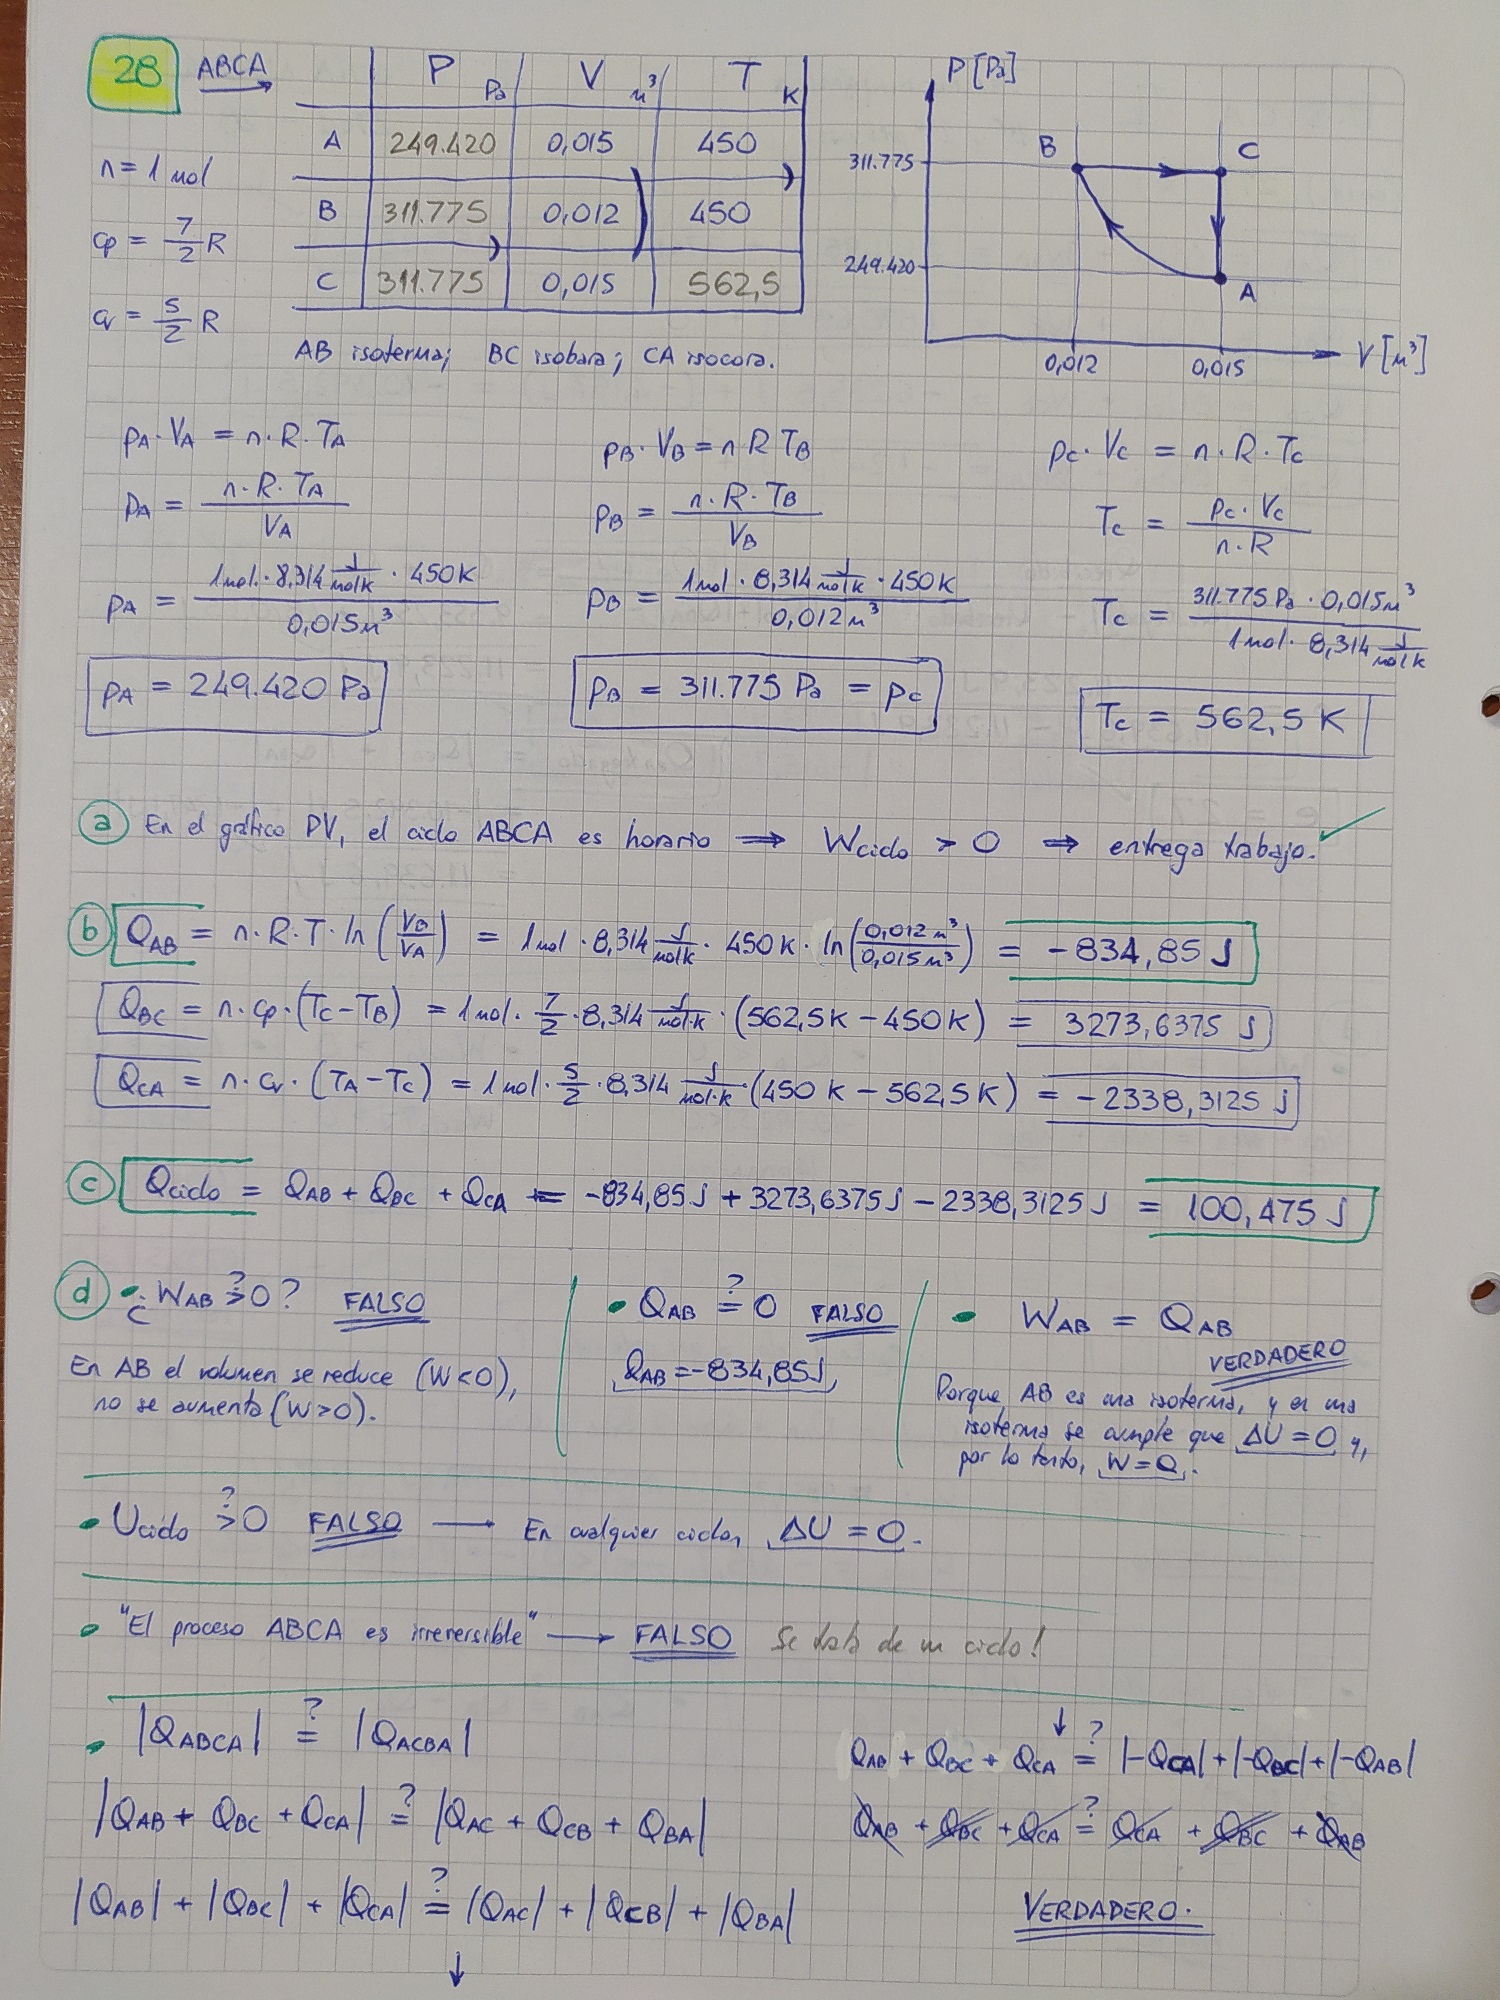 28 ABCA
P Pa V m³ T K
A 249.420 0,015 450
B 311.775 0,012 450
C 311.775 0,015 562,5
n = 1 mol
cp = 7/2 R
cv = 5/2 R
AB isoterma; BC isobara; CA isocora.
P [Pa]
B C
311.775
249.420
A
0,012 0,015 V [m³]
pA · VA = n · R · TA
pA = n · R · TA / VA
pA = 1 mol · 8,314 J/mol K · 450 K / 0,015 m³
pA = 249.420 Pa
pB · VB = n R TB
pB = n · R · TB / VB
pB = 1 mol · 8,314 J/mol K · 450 K / 0,012 m³
pB = 311.775 Pa = pc
pc · Vc = n · R · Tc
Tc = pc · Vc / n · R
Tc = 311.775 Pa · 0,015 m³ / 1 mol · 8,314 J/mol K
Tc = 562,5 K
a En el gráfico PV, el ciclo ABCA es horario ⟹ Wciclo > 0 ⟹ entrega trabajo. ✓
b QAB = n · R · T · ln (VB/VA) = 1 mol · 8,314 J/mol K · 450 K · ln (0,012 m³/0,015 m³) = -834,85 J
QBC = n · cp · (Tc - TB) = 1 mol · 7/2 · 8,314 J/mol·K · (562,5 K - 450 K) = 3273,6375 J
QCA = n · cv · (TA - Tc) = 1 mol · 5/2 · 8,314 J/mol·K · (450 K - 562,5 K) = -2338,3125 J
c Qciclo = QAB + QBC + QCA = -834,85 J + 3273,6375 J - 2338,3125 J = 100,475 J
d • ¿WAB >? 0? FALSO
En AB el volumen se reduce (W<0),
no se aumenta (W>0).
• QAB =? 0 FALSO
QAB = -834,85 J
• WAB = QAB
VERDADERO
Porque AB es una isoterma, y en una
isoterma se cumple que ΔU = 0 y,
por lo tanto, W = Q.
• Uciclo >? 0 FALSO → En cualquier ciclo, ΔU = 0.
• "El proceso ABCA es irreversible" → FALSO Se trata de un ciclo!
• |QABCA| =? |QACBA|
|QAB + QBC + QCA| =? |QAC + QCB + QBA|
|QAB| + |QBC| + |QCA| =? |QAC| + |QCB| + |QBA|
↓
↓
QAB + QBC + QCA =? |-QCA| + |-QBC| + |-QAB|
QAB + QBC + QCA =? QCA + QBC + QAB
VERDADERO.